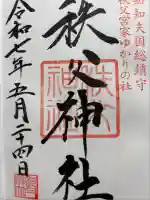 知知夫国総鎮守
秩父宮家ゆかりの社
秩父神社
令和七年五月二十四日